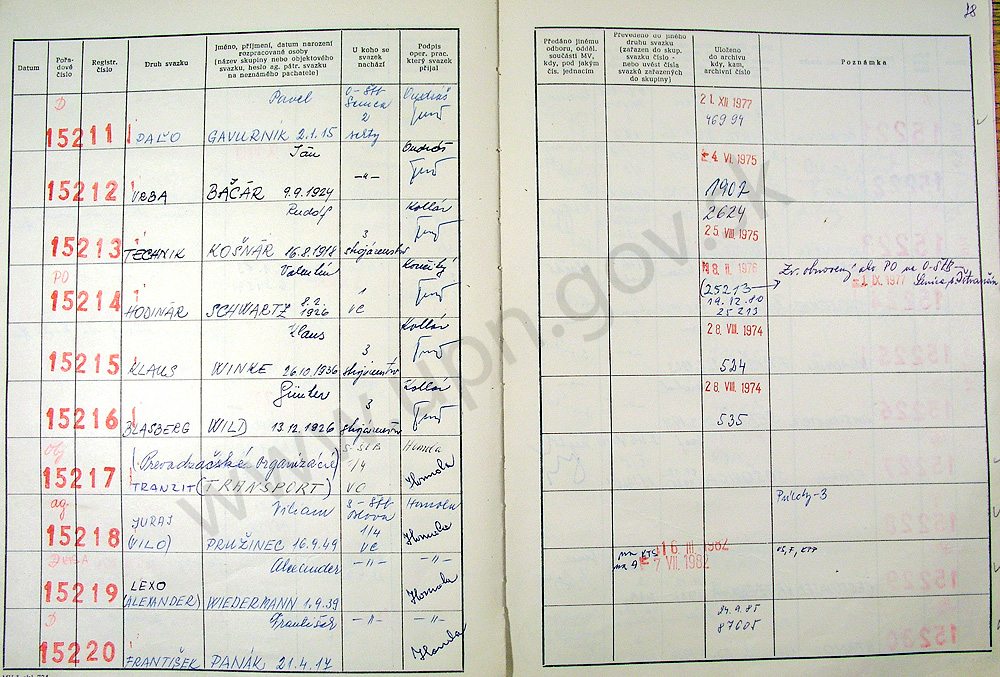 18
Datum
Pořa-
dové
číslo
Registr.
číslo
Druh svazku
Jméno, příjmení, datum narození
rozpracované osoby
(název skupiny nebo objektového
svazku, heslo ag. pátr. svazku
na neznámého pachatele)
U koho se
svazek
nachází
Podpis
oper. prac.
který svazek
přijal
Předáno jinému
odboru, odděl.
součásti MV,
kdy, pod jakým
čís. jednacím
Převedeno do jiného
druhu svazku
(zařazen do skup.
svazku číslo -
nebo uvést čísla
svazků zařazených
do skupiny)
Uloženo
do archivu
kdy, kam,
archivní číslo
Poznámka
D
Pavel
Senica
2
15211
GAVURNÍK 2.1.15
21. XII 1977
46994
Ján
15212
VRBA
BAČÁR 9.9.1924
-"-
4. VI. 1975
1902
Rudolf
Kollár
3
15213
TECHNIK
KOŠNÁR 16.8.1918
strojárenstvo
2624
25. VIII. 1975
PO
Valentín
15214
HODINÁR
SCHWARTZ 8.2.
1926
VC
8. II. 1976
(25213
19.12.10
25213
1. IX. 1977
Klaus
Kollár
3
15215
KLAUS
WINKE 26.10.1936
strojárenstvo
28. VIII. 1974
524
Günter
Kollár
3
15216
BLASBERG
WILD 13.12.1926
strojárenstvo
28. VIII. 1974
535
Obj
(Prevádzačské organizácie)
1/4
Homola
15217
TRANZIT (TRANSPORT)
VC
Homola
ag.
Viliam
Homola
JURAJ
1/4
15218
(VILO)
PRUŽINEC 16.9.49
VC
Homola
Alexander
-"-
-"-
LEXO
15219
(ALEXANDER)
WIEDERMANN 1.9.39
Homola
na KTS
16. III. 1982
na A
7 VII. 1982
D
František
-"-
-"-
15220
FRANTIŠEK
PANÁK 21.4.17
Homola
24.9.85
87605
www.upn.gov.sk